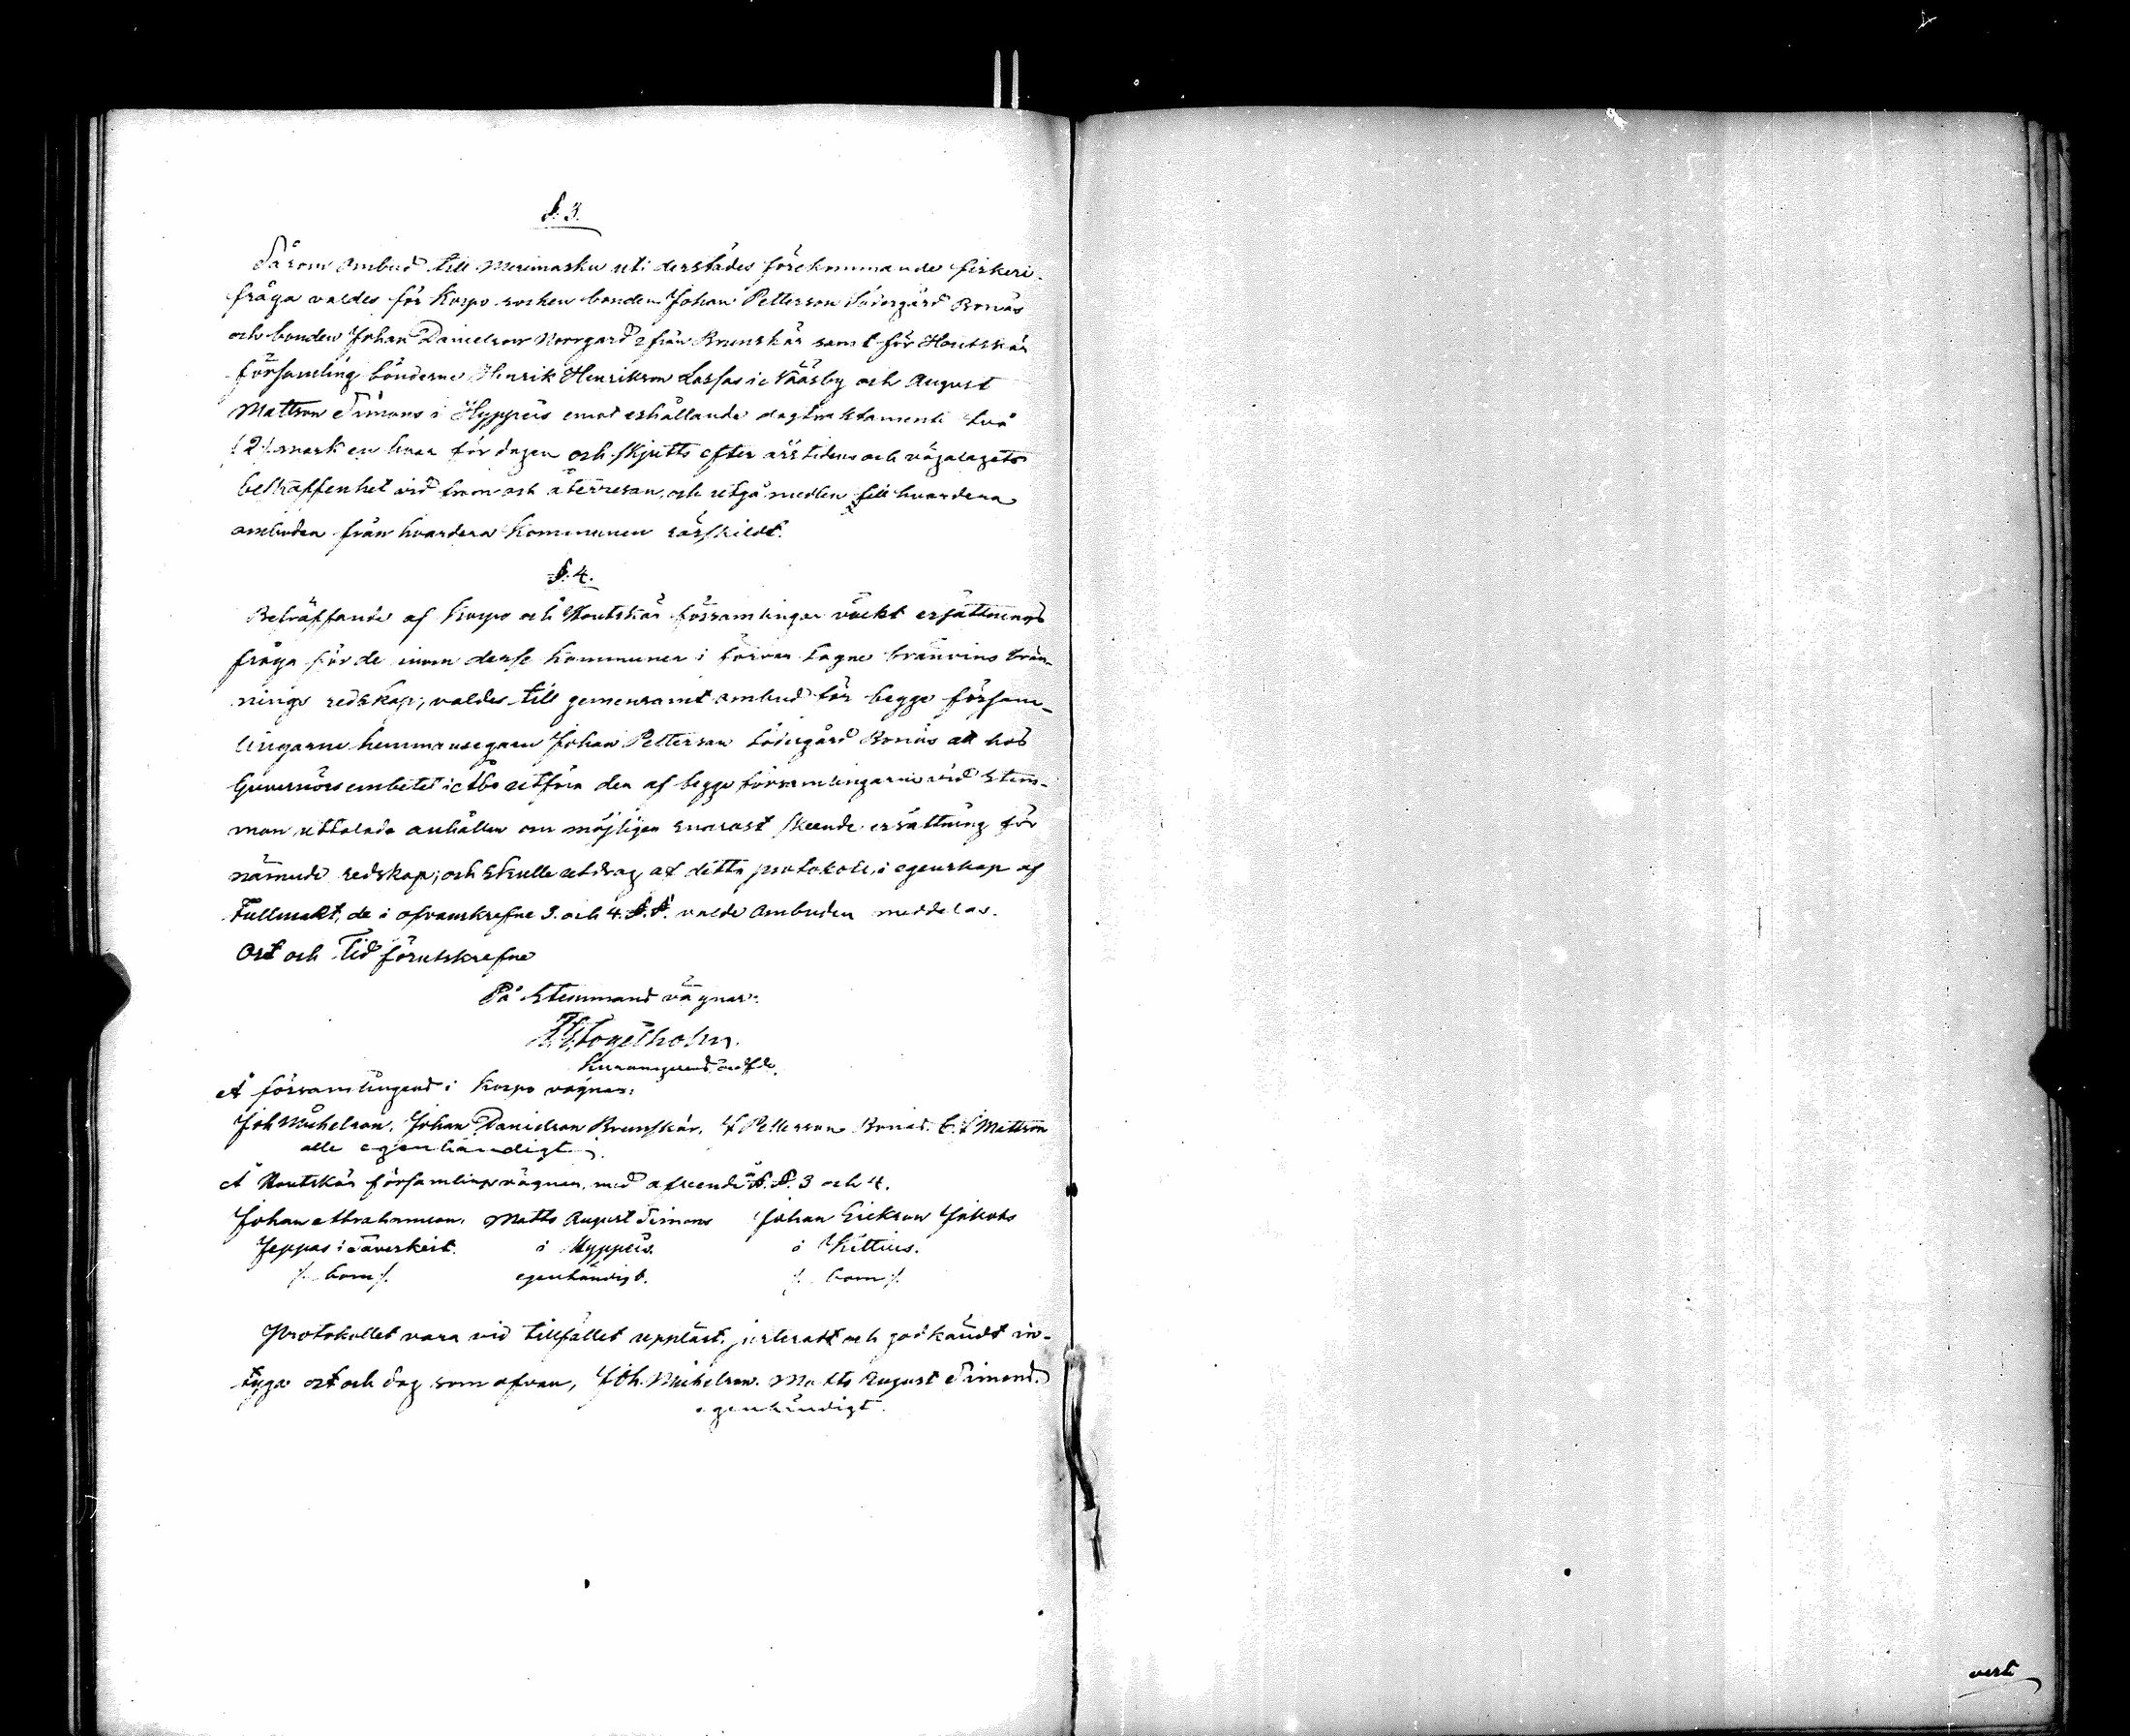 §. 3.
Såsom Ombud till Merimasku uti derstädes förekommande fiskeri-
fråga valdes för Korpo socken bonden Johan Petterson Södergård Bonäs
och bonden Johan Danielson Norrgård från Brunskär samt för Houtskär
församling bönderne Henrik Henrikson Lassas i Näsby och August
Mattson Simons i Hyppeis emot erhållande dagtraktamente två
(2) mark en hvar för dagen och skjutts efter årstidens och väglagets
beskaffenhet vid fram och återresan, och utgå medlen till hvardera
ombuden från hvardera Kommunen särskildt.
§. 4.
Beträffande af Korpo och Houtskär församlingar väckt ersättnings
fråga för de inom desse kommuner i förvar tagne bränvins brän-
nings redskap, valdes till gemensamt ombud för begge försam-
lingarne hemmansegaren Johan Petterson Södergård Bonäs att hos
Guvernörsembetet i Åbo utföra den af begge församlingarne vid stäm-
man uttalade anhållan om möjligen snarast skeende ersättning för
nämnde redskap; och skulle utdrag af detta protokoll, i egenskap af
Fullmakt, de i ofvanskrefne 3. och 4. §.§. valde Ombuden meddelas.
Ort och tid förutskrefne
På Stemmans vägnar:
Fogelholm.
Å församlingens i Korpo vägnar:
Joh Michelson. Johan Danielson Brunskär. J Petterson Bonäs. E. J Mattson
alle egenhändigt
Å Houtskär församlings vägnar, med afseende å §.§. 3 och 4.
Johan Abrahamson. Matts August Simons Johan Erickson Jakobs
Jeppas i Saverkeit. i Hyppeis. i Kittuis.
/. bom /. egenhändigt. /. bom /.
Protokollet vara vid tillfället uppläst, justeradt och godkändt in-
tyga ort och dag som ofvan, Joh. Michelson. Matts August Simons.
egenhändigt.
verte